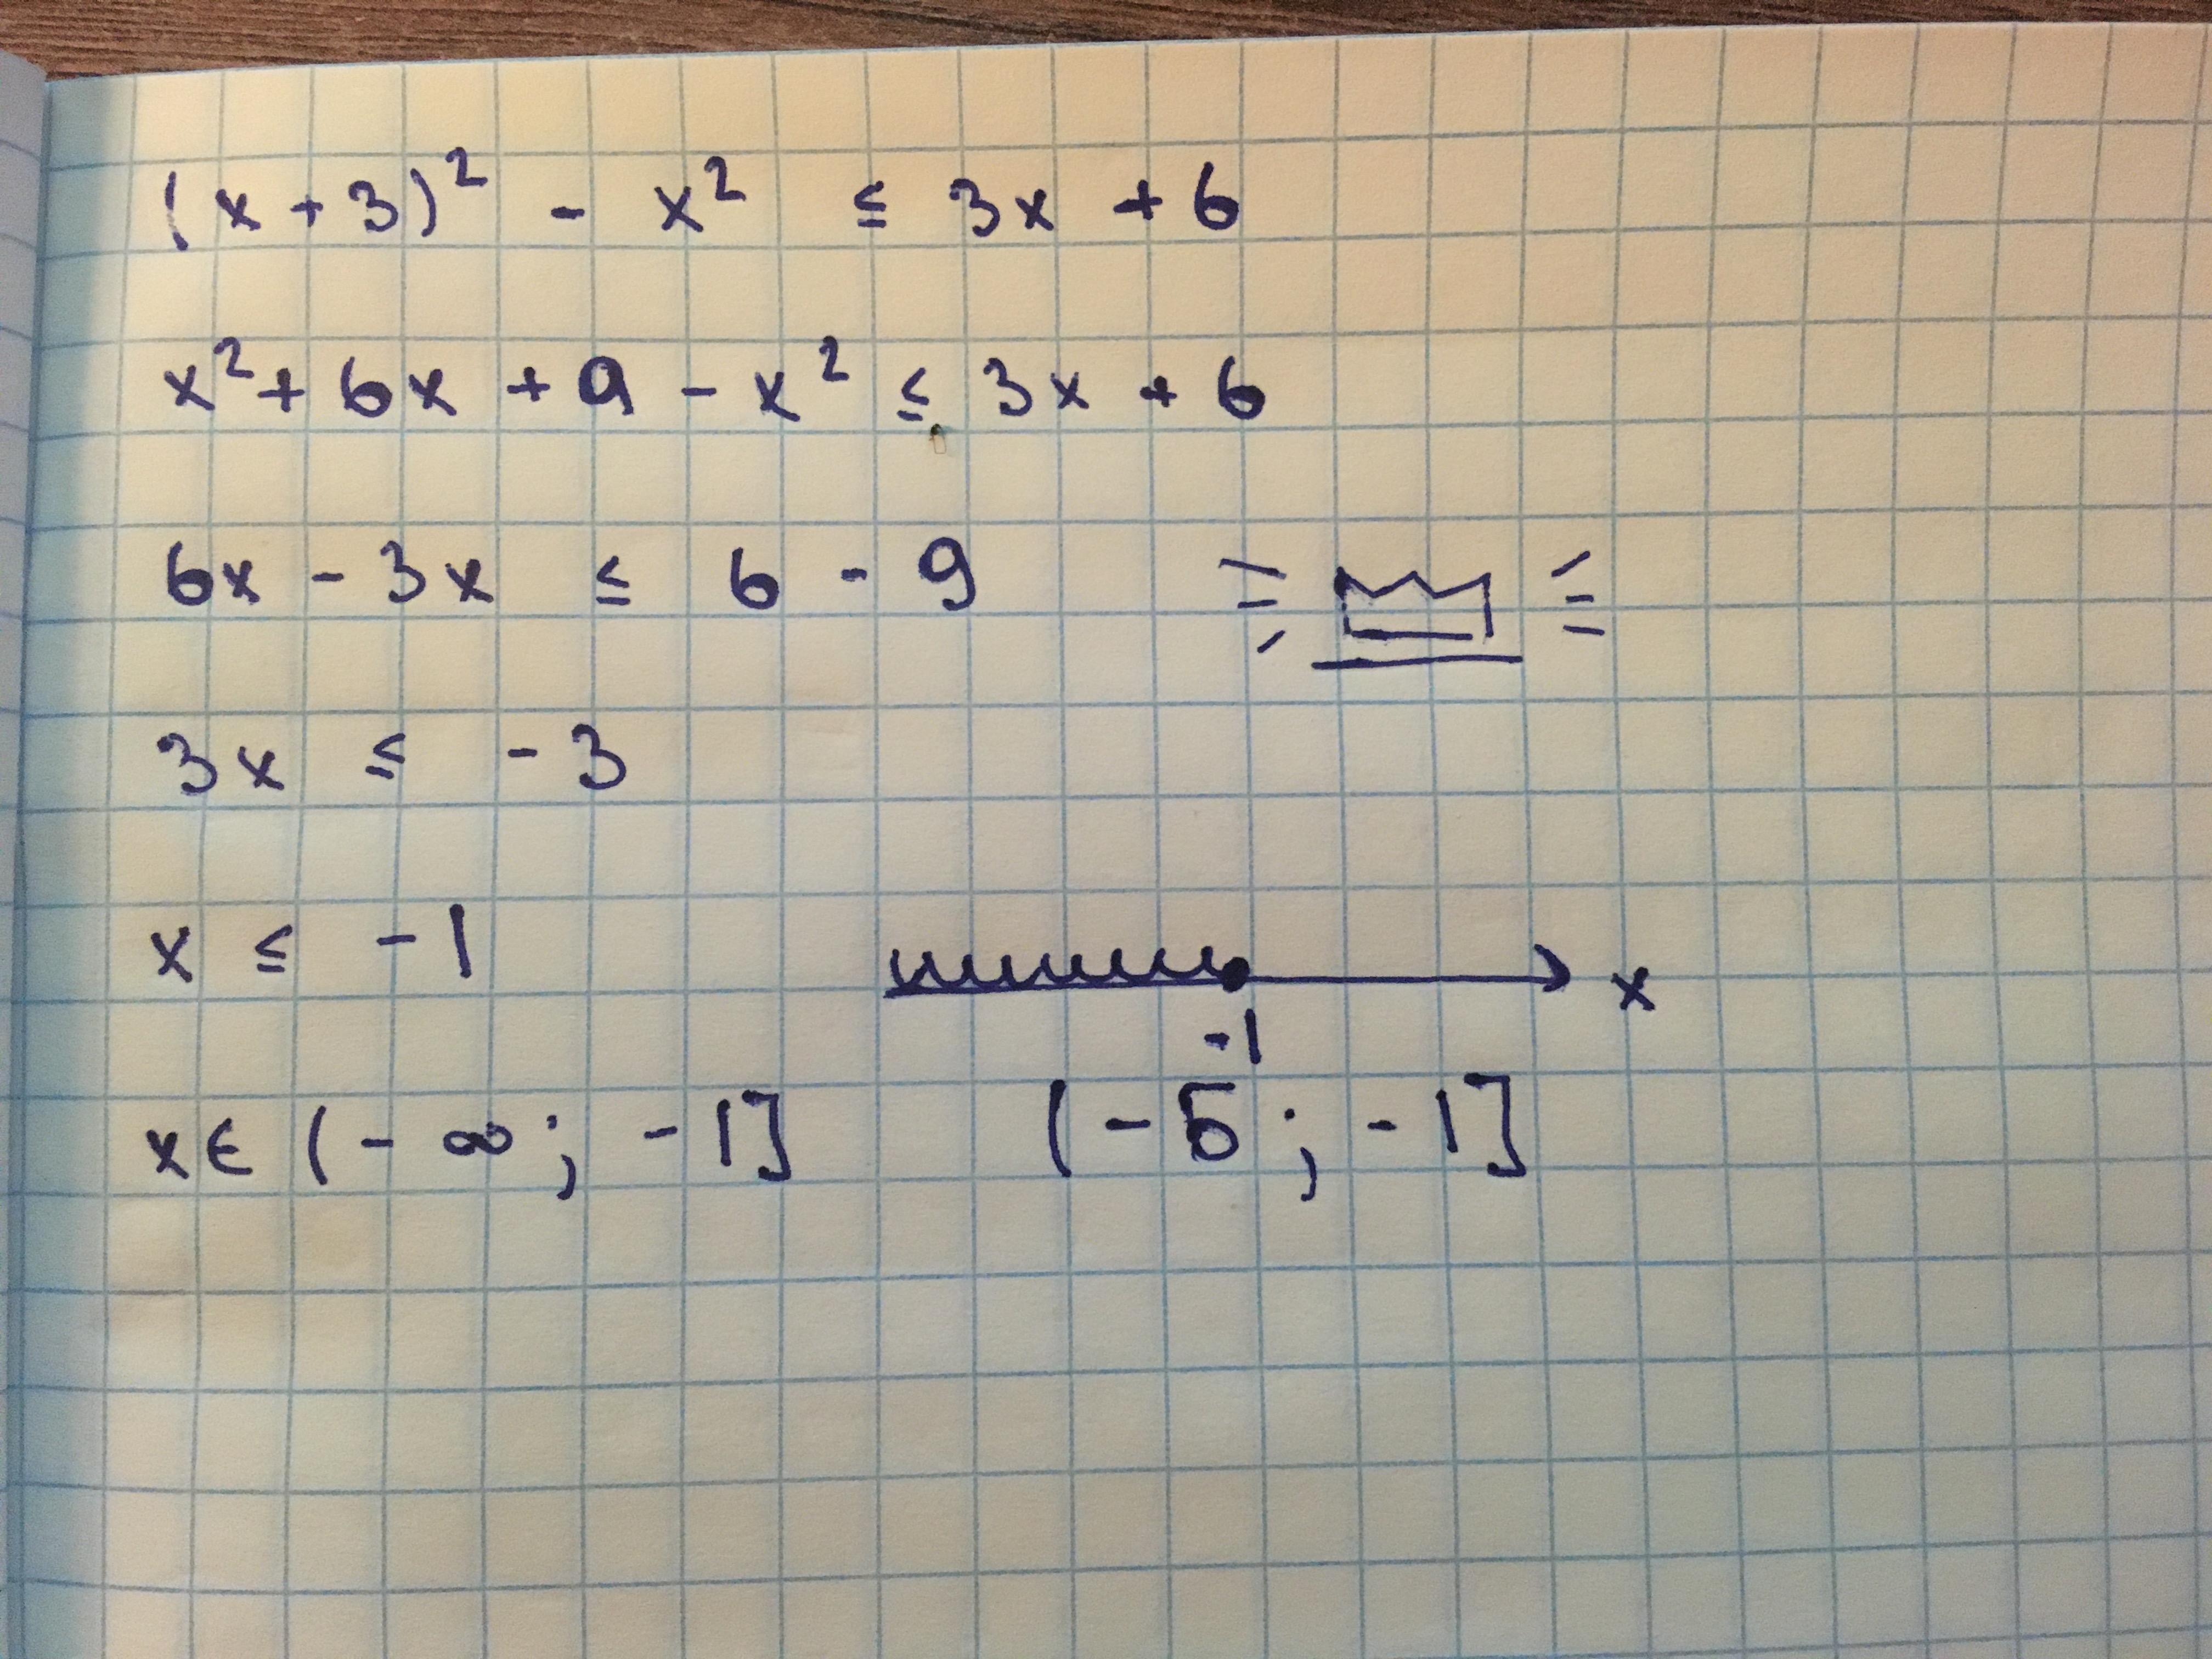 (x + 3)² - x² ≤ 3x + 6
x² + 6x + 9 - x² ≤ 3x + 6
6x - 3x ≤ 6 - 9
3x ≤ -3
x ≤ -1
x
-1
x ∈ (-∞; -1]
(-5; -1]